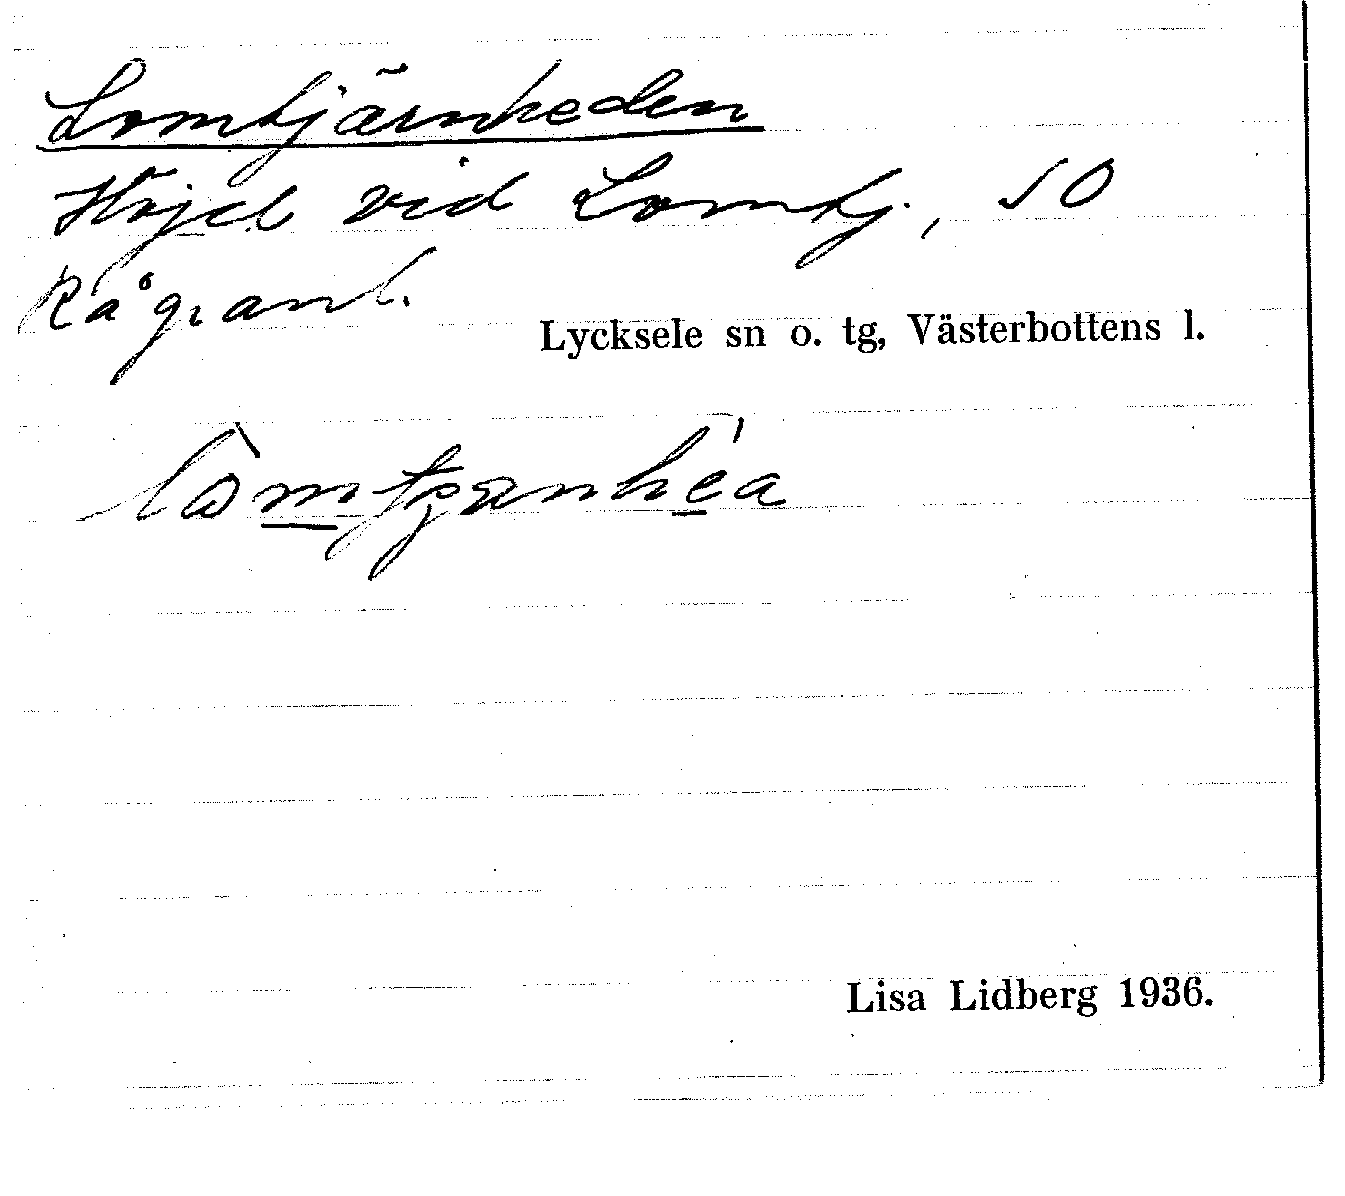 Lomtjärnheden
Höjd vid Lomtj., SO
Rågranl.
Lycksele sn o. tg, Västerbottens l.
Lisa Lidberg 1936.